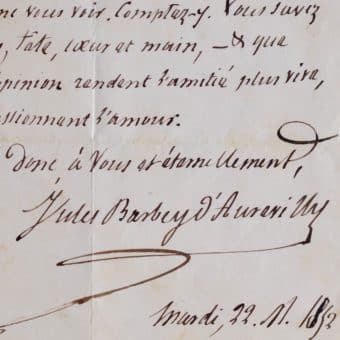 nc vous voir. Comptez-y. Vous savez
, tate, cœur et main, – & que
pinion rendent l'amitié plus vive,
ssionnent l'amour.
Donc à Vous et éternellement,
Jules Barbey d'Aurevilly
mardi, 22. M. 1852